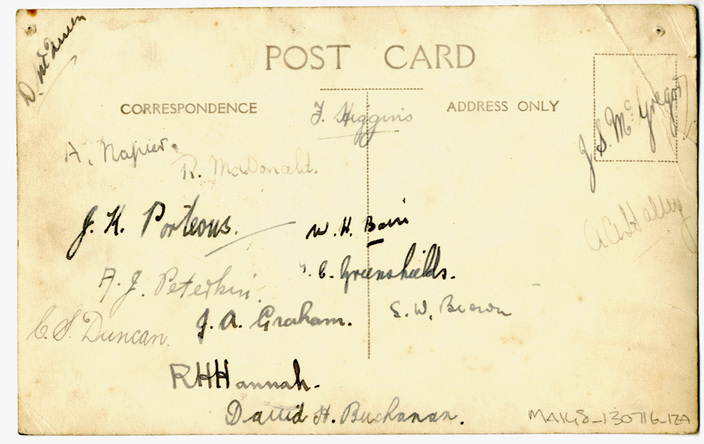 POST CARD
CORRESPONDENCE
ADDRESS ONLY
F. Higgins
J. S. McGregor
A. Napier.
R. McDonald.
J. K. Porteous.
W. H. Bain
A. A. Halley
E. Greenshields.
A. J. Peterkin.
C. S. Duncan.
J. A. Graham.
E. W. Brown
RHHannah.
David H. Buchanan.